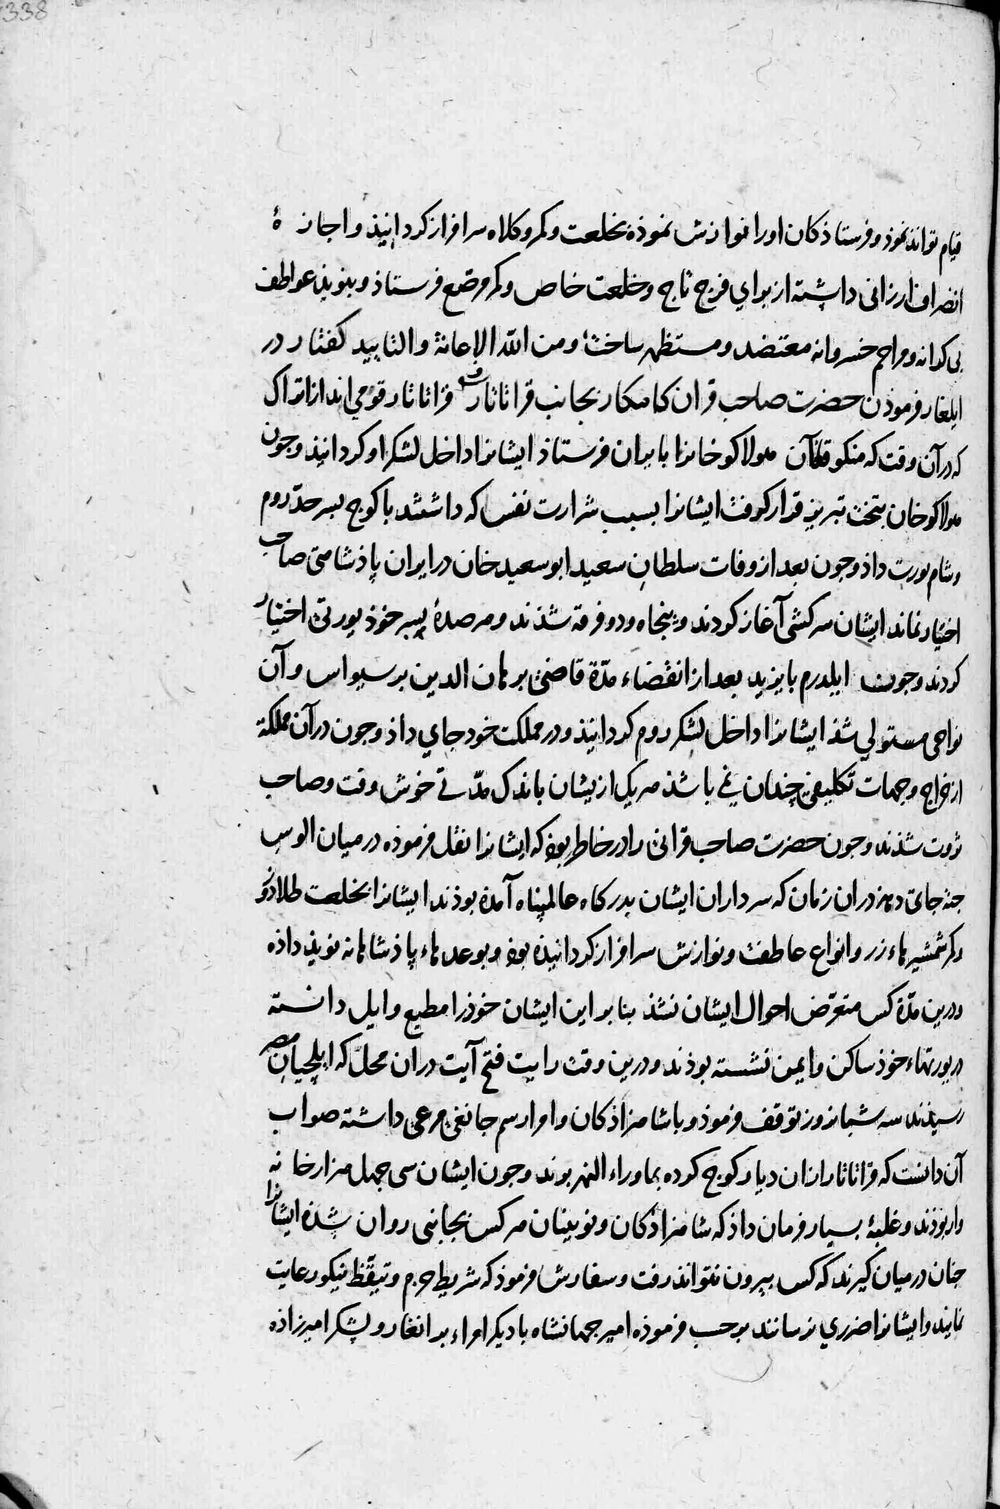 338
قیام تواند نمود و فرستاذکان اورا نوازش نموذه بخلعت و کمر و کلاه سرافراز کردانیذ و اجازۀ
انصراف ارزانی داشته از برای فرج تاج و خلعت خاص و کمر مرصع فرستاذ و بنوید عواطف
بی کرانه و مراحم خسروانه معتضد و مستظهر ساخت ومن الله الاعانة والتایید کفتار در
ایلغار فرموذن حضرت صاحب قران کامکار بجانب قراتاتار و قراتاتار قومی اند از اتراک
که در آن وقت که منکو قاآن هولاکو خانرا بایران فرستاذ ایشانرا داخل لشکر او کردانیذ وجون
هولاکو خان بتخت تبریز قرار کرفت ایشانرا بسبب شرارت نفس که داشتند با کوج بسرحد روم
و شام یورت داذ وجون بعد از وفات سلطان سعید ابو سعید خان در ایران پاذشاهی صاحب
اختیار نماند ایشان سرکشی آغاز کردند و پنجاه و دو فرقه شذند و هر صدۀ بسر خوذ یورتی اختیار
کردند وجون ایلدرم بایزید بعد از انقضاء مدّة قاضی برهان الدین بر سیواس و آن
نواحی مستولی شذ ایشانرا داخل لشکر روم کردانیذ و در مملکت خود جای داذ وجون در آن مملکة
از خراج وجهات تکلیفی چندان نمی باشد هر یک ازیشان باندک مدّتی خوش وقت و صاحب
ثروت شذند وجون حضرت صاحب قرانی را در خاطر بوذ که ایشانرا نقل فرموده در میان الوس
جته جای دهد در ان زمان که سرداران ایشان بدرکاه عالم پناه آمده بوذند ایشانرا بخلعت طلادوز
و کمر شمشیرهاء زر و انواع عاطفت و نوازش سرافراز کردانیذه بوذ و بوعدهاء پاذشاهانه نویذ داذه
و درین مدّة کس متعرّض احوال ایشان نشذ بنابراین ایشان خوذرا مطیع و ایل دانسته
در یورتهاء خوذ ساکن و ایمن نشسته بوذند و درین وقت رایت فتح آیت در ان محلّ که ایلچیان مصر
رسیذند سه شبانروز توقف فرموذ و با شاهزاذکان و امرا رسم جانقی مرعی داشته صواب
آن دانست که قراتاتار را از ان دیار کوج کرده بماوراء النهر برند وجون ایشان سی جهل هزار خانه
وار بوذند و غلبۀ بسیار فرمان داذ که شاهزاذکان و نوینیان هر کس بجانبی روان شذه ایشانرا
جنان درمیان کیرند که کس بیرون نتواند رفت و سفارش فرموذ که شریطه حزم و تیقّظ نیکو رعایت
نمایند و ایشانرا ضرری نرسانند بر حسب فرموذه امیر جهانشاه با دیکر امراء برانغار و لشکر امیرزاذه